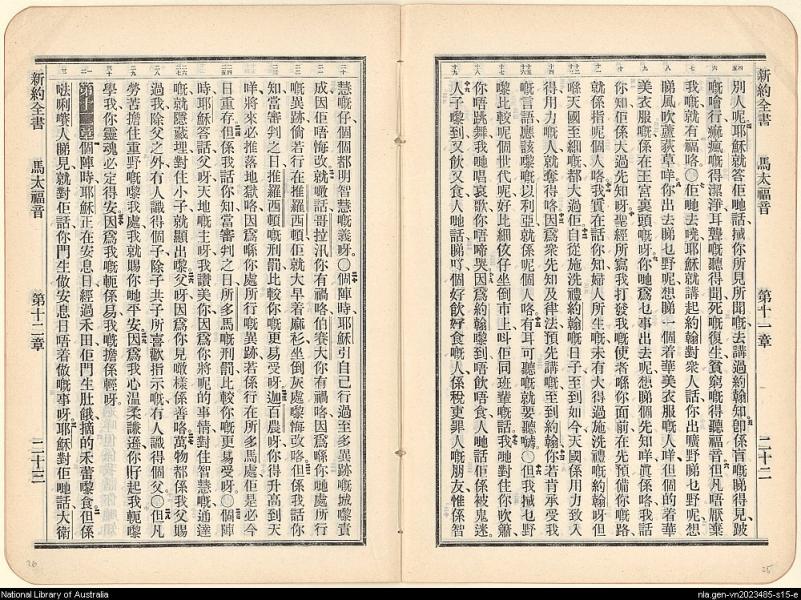 新約全書 馬太福音 第十一章 二十二
別人呢耶穌就答佢哋話、搣你所見所聞嘅、去講過約翰知、卽係盲嘅睇得見、跛
嘅噲行、癩瘋嘅得潔淨、耳聾嘅聽得聞、死嘅復生、貧窮嘅得聽福音、但凡唔厭棄
我嘅就有福咯○佢哋去嘵耶穌就講起約翰對衆人話、你出曠野睇乜野呢、想
睇風吹蘆荻草咩、你出去睇乜野呢、想睇一個着華美衣服嘅人咩、但個的着華
美衣服嘅係在王宮裏頭嘅呀、你哋爲乜事出去呢、想睇個先知咩、眞係咯、我話
你知、佢係大過先知呀、聖經所寫我打發我嘅使者喺你面前、在先預備你嘅路
就係指呢個人咯、我實在話你知、婦人所生嘅、未有大得過施洗禮嘅約翰呀、但
喺天國至細嘅、都大過佢、自從施洗禮約翰嘅日子、至到如今、天國係用力致入
得、用力嘅人就奪得咯、因爲衆先知及律法預先講嘅、至到約翰、你若肯承受我
嘅言語、應該嚟嘅以利亞就係呢個人咯、有耳可聽嘅就要聽噃○但我搣乜野
嚟比較呢個世代呢、好比細佊仔坐倒市上、呌佢同班輩嘅話、我哋對住你吹簫、
你唔跳舞、我哋唱哀歌、你唔啼哭、因爲約翰嚟到、唔飲唔食、人哋話佢係被鬼迷、
人子嚟到、又飲又食、人哋話睇吓個好飲好食嘅人、係稅吏罪人嘅朋友、惟係智
慧嘅仔、個個都明智慧嘅義呀○個陣時耶穌引自己行過至多異跡嘅城嚟責
成、因佢唔悔改、就噉話哥拉汛你有禍咯、伯賽大你有禍咯、因爲喺你哋處所行
嘅異跡、倘若行在推羅西頓、佢就大早着麻衫坐倒灰處、嚟悔改咯、但係我話你
知、當審判之日、推羅西頓嘅刑罰、比較你嘅更易受呀、迦百農呀、你得升高到天
咩、將來必推落地獄咯、因爲喺你處所行嘅異跡、若係行在所多馬處、佢是必今
日重存、但係我話你知、當審判之日、所多馬嘅刑罰、比較你嘅更易受呀○個陣
時耶穌答話、父呀、天地嘅主呀、我讚美你、因爲你將呢的事情、對住智慧嘅通達
嘅、就隱蔽埋、對住小子就顯出嚟、父呀、因爲你見噉樣係善咯、萬物都係我父賜
過我、除父之外、有人識得個子、除子共子所喜歡指示嘅、有人識得個父、○但凡
勞苦擔住重野嘅、嚟我處、我就賜你哋平安、因爲我心溫柔謙遜、你孭起我軛、嚟
學我、你靈魂必定得安、因爲我嘅軛係易、我嘅擔係輕呀、
第十二章個陣時耶穌正在安息日經過禾田、佢門生肚餓、摘的禾蕾嚟食、但係
𠵽唎㗾人睇見、就對佢話、你門生做安息日唔着做嘅事呀、耶穌對佢哋話、大衛
新約全書 馬太福音 第十二章 二十三
26
25
National Library of Australia
nla.gen-vn2023485-s15-e